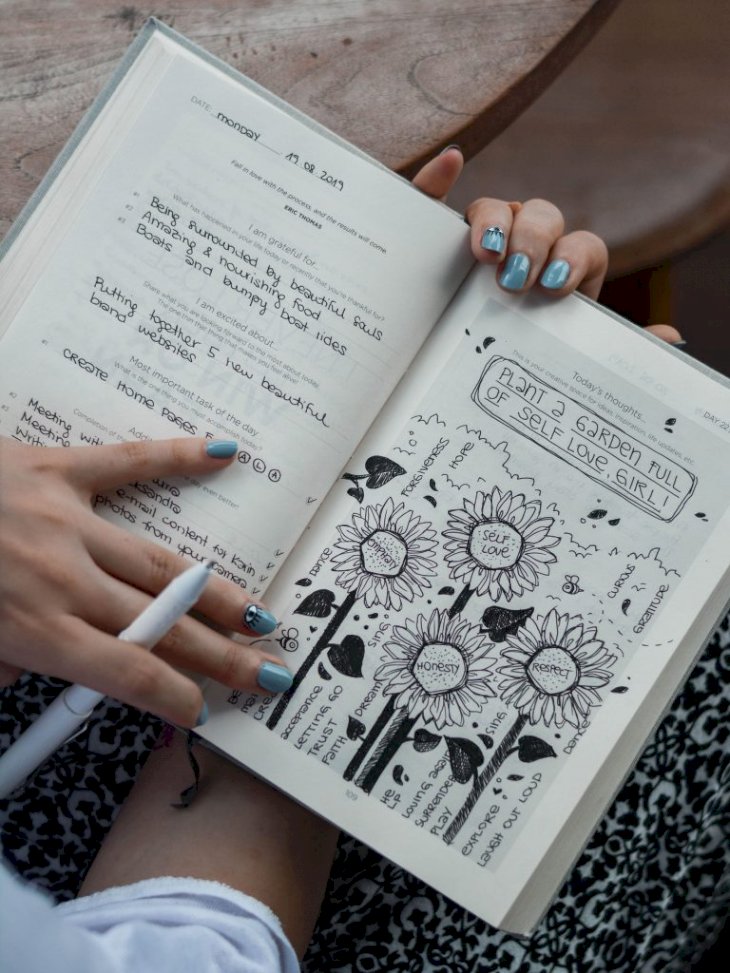 DATE: monday 19.08.2019
Fall in love with the process, and the results will come.
ERIC THOMAS
I am grateful for...
What has happened in your life today or recently that you're thankful for?
#1 Being surrounded by beautiful souls
#2 Amazing & nourishing food
#3 Boats and bumpy boat rides
I am excited about...
Share what you are looking forward to the most about today.
The one thing that makes you feel alive!
Putting together 5 new beautiful
brand websites
Most important task of the day
What is the one thing you must accomplish today?
#1 create home pages
ALA
Completion of the
day even better!
#2 Meeting with
#3 Meeting
e-mail content for Karin
photos from your camera
109
Today's thoughts...
This is your creative space for ideas, inspiration, life updates, etc.
DAY 22
PLANT A GARDEN FULL
OF SELF LOVE, GIRL!
FORGIVENESS
HOPE
SELF
LOVE
DANCE
SING
CURIOUS
GRATITUDE
HONESTY
RESPECT
acceptance
LETTING GO
TRUST
FAITH
DREAM
SING
DANCE
HELP
LOVING AGAIN
SURRENDER
PLAY
EXPLORE
LAUGH OUT LOUD